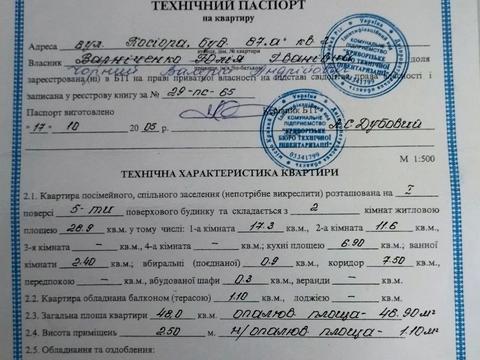 ТЕХНІЧНИЙ ПАСПОРТ
на квартиру
Адреса вул. Косіора, буд. 67а кв.
Власник Варніченко Юлія Іванівна доля
Чорний Валерій Андрійович
зареєстрована(ні) в БТІ на праві приватної власності на підставі свідоцтва права власності і
записана у реєстрову книгу за № 29-пс-65
Паспорт виготовлено
БТІ
КОМУНАЛЬНЕ
ПІДПРИЄМСТВО
КРИВОРІЗЬКЕ
БЮРО ТЕХНІЧНОЇ
ІНВЕНТАРИЗАЦІЇ
03341799
"17" 10 2005р. А.С Дубовий
М 1:500
ТЕХНІЧНА ХАРАКТЕРИСТИКА КВАРТИРИ
2.1. Квартира посімейного, спільного заселення (непотрібне викреслити) розташована на I
поверсі 5-ти поверхового будинку та складається з 2 кімнат житловою
площею 28.9 кв.м, у тому числі: 1-а кімната 17.3 кв.м., 2-а кімната 11.6 кв.м.,
3-я кімната – кв.м., 4-а кімната – кв.м.; кухні площею 6.90 кв.м., ванної
кімнати 2.40 кв.м.; вбиральні (поєднаної) 0.9 кв.м., коридор 7.50 кв.м.,
передпокою – кв.м., вбудованої шафи 0.3 кв.м., веранди – кв.м.
2.2. Квартира обладнана балконом (терасою) 1.10 кв.м., лоджією – кв.м.
2.3. Загальна площа квартири 48,0 кв.м. опалюв. площа- 46.90м²
2.4. Висота приміщень 2.50 м. н/опалюв. площа- 1.10м²
2.5. Обладнання та оздоблення: